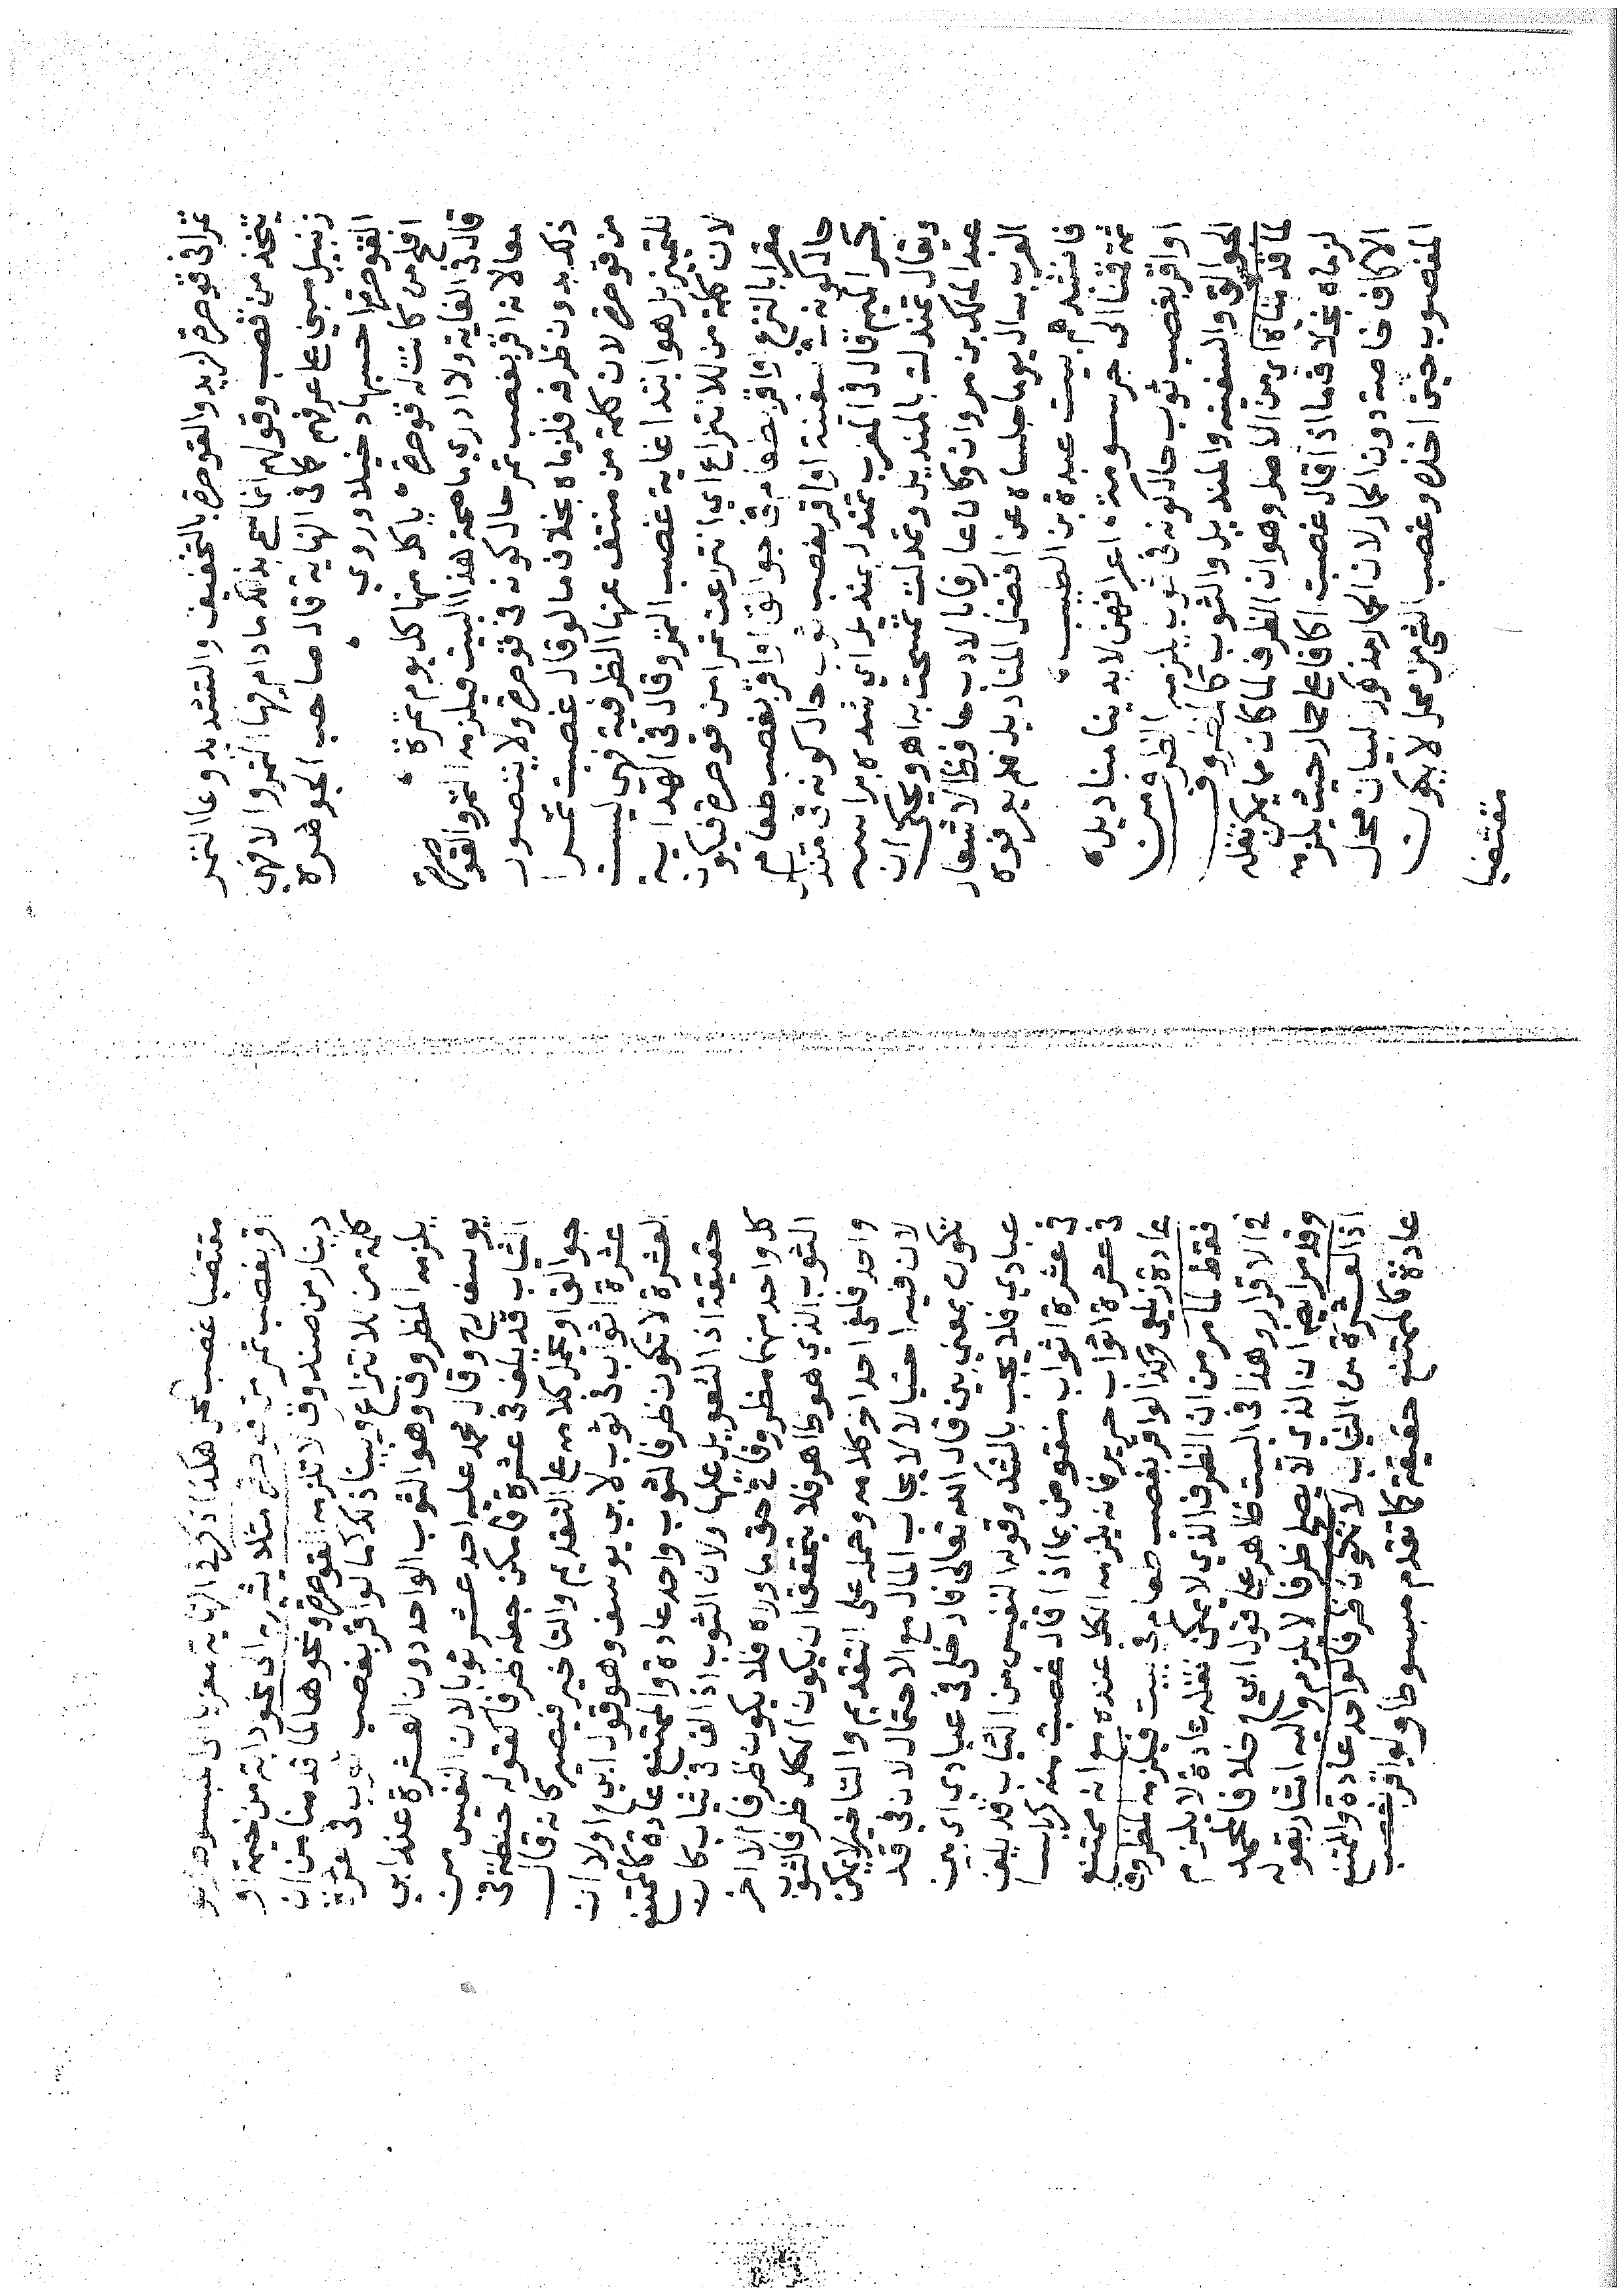 تمرا في قوصرة لزيد والقوصرة بالتخفيف والتشديد وعا التمر
يتخذ من قصب وقولهم انما تسمى بذلك ما دام فيها التمر والا فهي
زنبيل مبني على عرفهم كما في النهاية قال صاحب الجوهرة
القوصرة احسبها دخيلا وروي
افلح من كانت له قوصرة ياكل منها كل يوم تمرة
قال في الغاية ولا ادري ما صحة هذا البيت فيلزمه التمر والقوصرة
معا لانه اقر بغصب تمر حال كونه في قوصرة ولا يتصور
ذلك بدون ظرفه فلزماه بخلاف ما لو قال غصبت تمرا
من قوصرة لان كلمة من منتف عنها الظرفية فهي ليست
للتمييز بل هو ابتدا غاية غصب التمر وقال في الهداية
لان كلمة من للانتزاع اي انتزعت تمرا من قوصرة فيكون
مقرا بالنزع واقر بغصب طعام في جوالق او اقر بغصب طعام
حال كونه في سفينة او اقر بغصب ثوب حال كونه في منديل
بكسر الميم قال في المغرب تمندل بمنديل اي شده براسه
ويقال تمندلت بالمنديل وتمدلت تمسحت به اهو ويحكى ان
عبد الملك بن مروان وكان عارفا بالادب حافظا لاشعار
العرب سال يوما جلساه عن افضل المناديل فلم يعرفوه
فانشدهم بيت عبدة بن الطبيب
ثمة قمنا الى جرد مسومة اعرافهن لايدينا مناديل
او اقر بغصب ثوب حال كونه في ثوب يلزمه الظرف من
الجوالق والسفينة والمنديل والثوب كالمظروف
لما قدمناه اي من الاصل وهو ان الظرف لما كان مما يمكن نقله
لزماه بخلاف ما اذا قال غصبت اكافا على حمار حيث يلزمه
الاكاف خاصة دون الحمار لان الحمار مذكور لبيان محل
المغصوب حين اخذه وغصب الشي من محل لا يكون
مقتضيا
مقتضيا غصب محل هكذا ذكره في النهاية معزيا الى المبسوط ولو
اقر بغصب تمر من قوصرة مثلا شيه الى نحو دابة من خيمة او
دينار من صندوق لا تلزمه القوصرة ونحوها لما قدمنا من ان
كلمة من للانتزاع وبينا ذلك كما لو اقر بغصب ثوب في عشرة
يلزمه المظروف وهو الثوب الواحد دون العشرة عند ابي
يوسف رح وقال محمد عليه احد عشر ثوبا لان النفيس من
الثياب قد يلف في عشرة فامكن جعله ظرفا كقوله حنطة في
جوالق او يحمل كلامه على التقديم والتاخير فيصير كانه قال
عشرة اثواب في ثوب لابي يوسف وهو قول ابي ح اولا ان
العشرة لا تكون ظرفا لثوب واحد عادة والممتنع عادة كالممتنع
حقيقة اذ التعويل عليها ولان الثوب اذا لف في ثياب كان
كل واحد منهما مظروفا في حق ما وراه فلا يكون ظرفا الا اخر
الثوب الذي هو ظاهر فلا يتحقق ان يكون الكل ظرفا لثوب
واحد فلغى احد اخر كلامه وحمله على التقديم والتاخير لا يمكن
لان فيه احتيالا لايجاب المال مع الاحتمال لان في قد
تكون بمعنى بين قال الله تعالى فادخلي في عبادي اي بين
عبادي فلا يجب بالشك وقوله النفيس من الثياب قد يلف
في عشرة اثواب منقوض بما اذا قال غصبت منه كرباسا
في عشرة اثواب حرير فانه يلزمه الكل عنده مع انه ممتنع
عادة زيلعي وكذا لو اقر بغصب طعام في بيت فيلزمه المظروف
فقط لما مر من ان الظرف الذي لا يمكن نقله عادة لا يلزم
في الاقرار وهذا في البيت ظاهر على قول ابي ح خلافا لمحمد
وقد مر ايضا ان الذي لا يصلح ظرفا لا يلزم واليه اشار بقوله
اذ العشرة من الثياب لا تكون ظرفا لواحد عادة والممتنع
عادة كالممتنع حقيقة كما تقدم مبسوطا ولو اقر بغصب